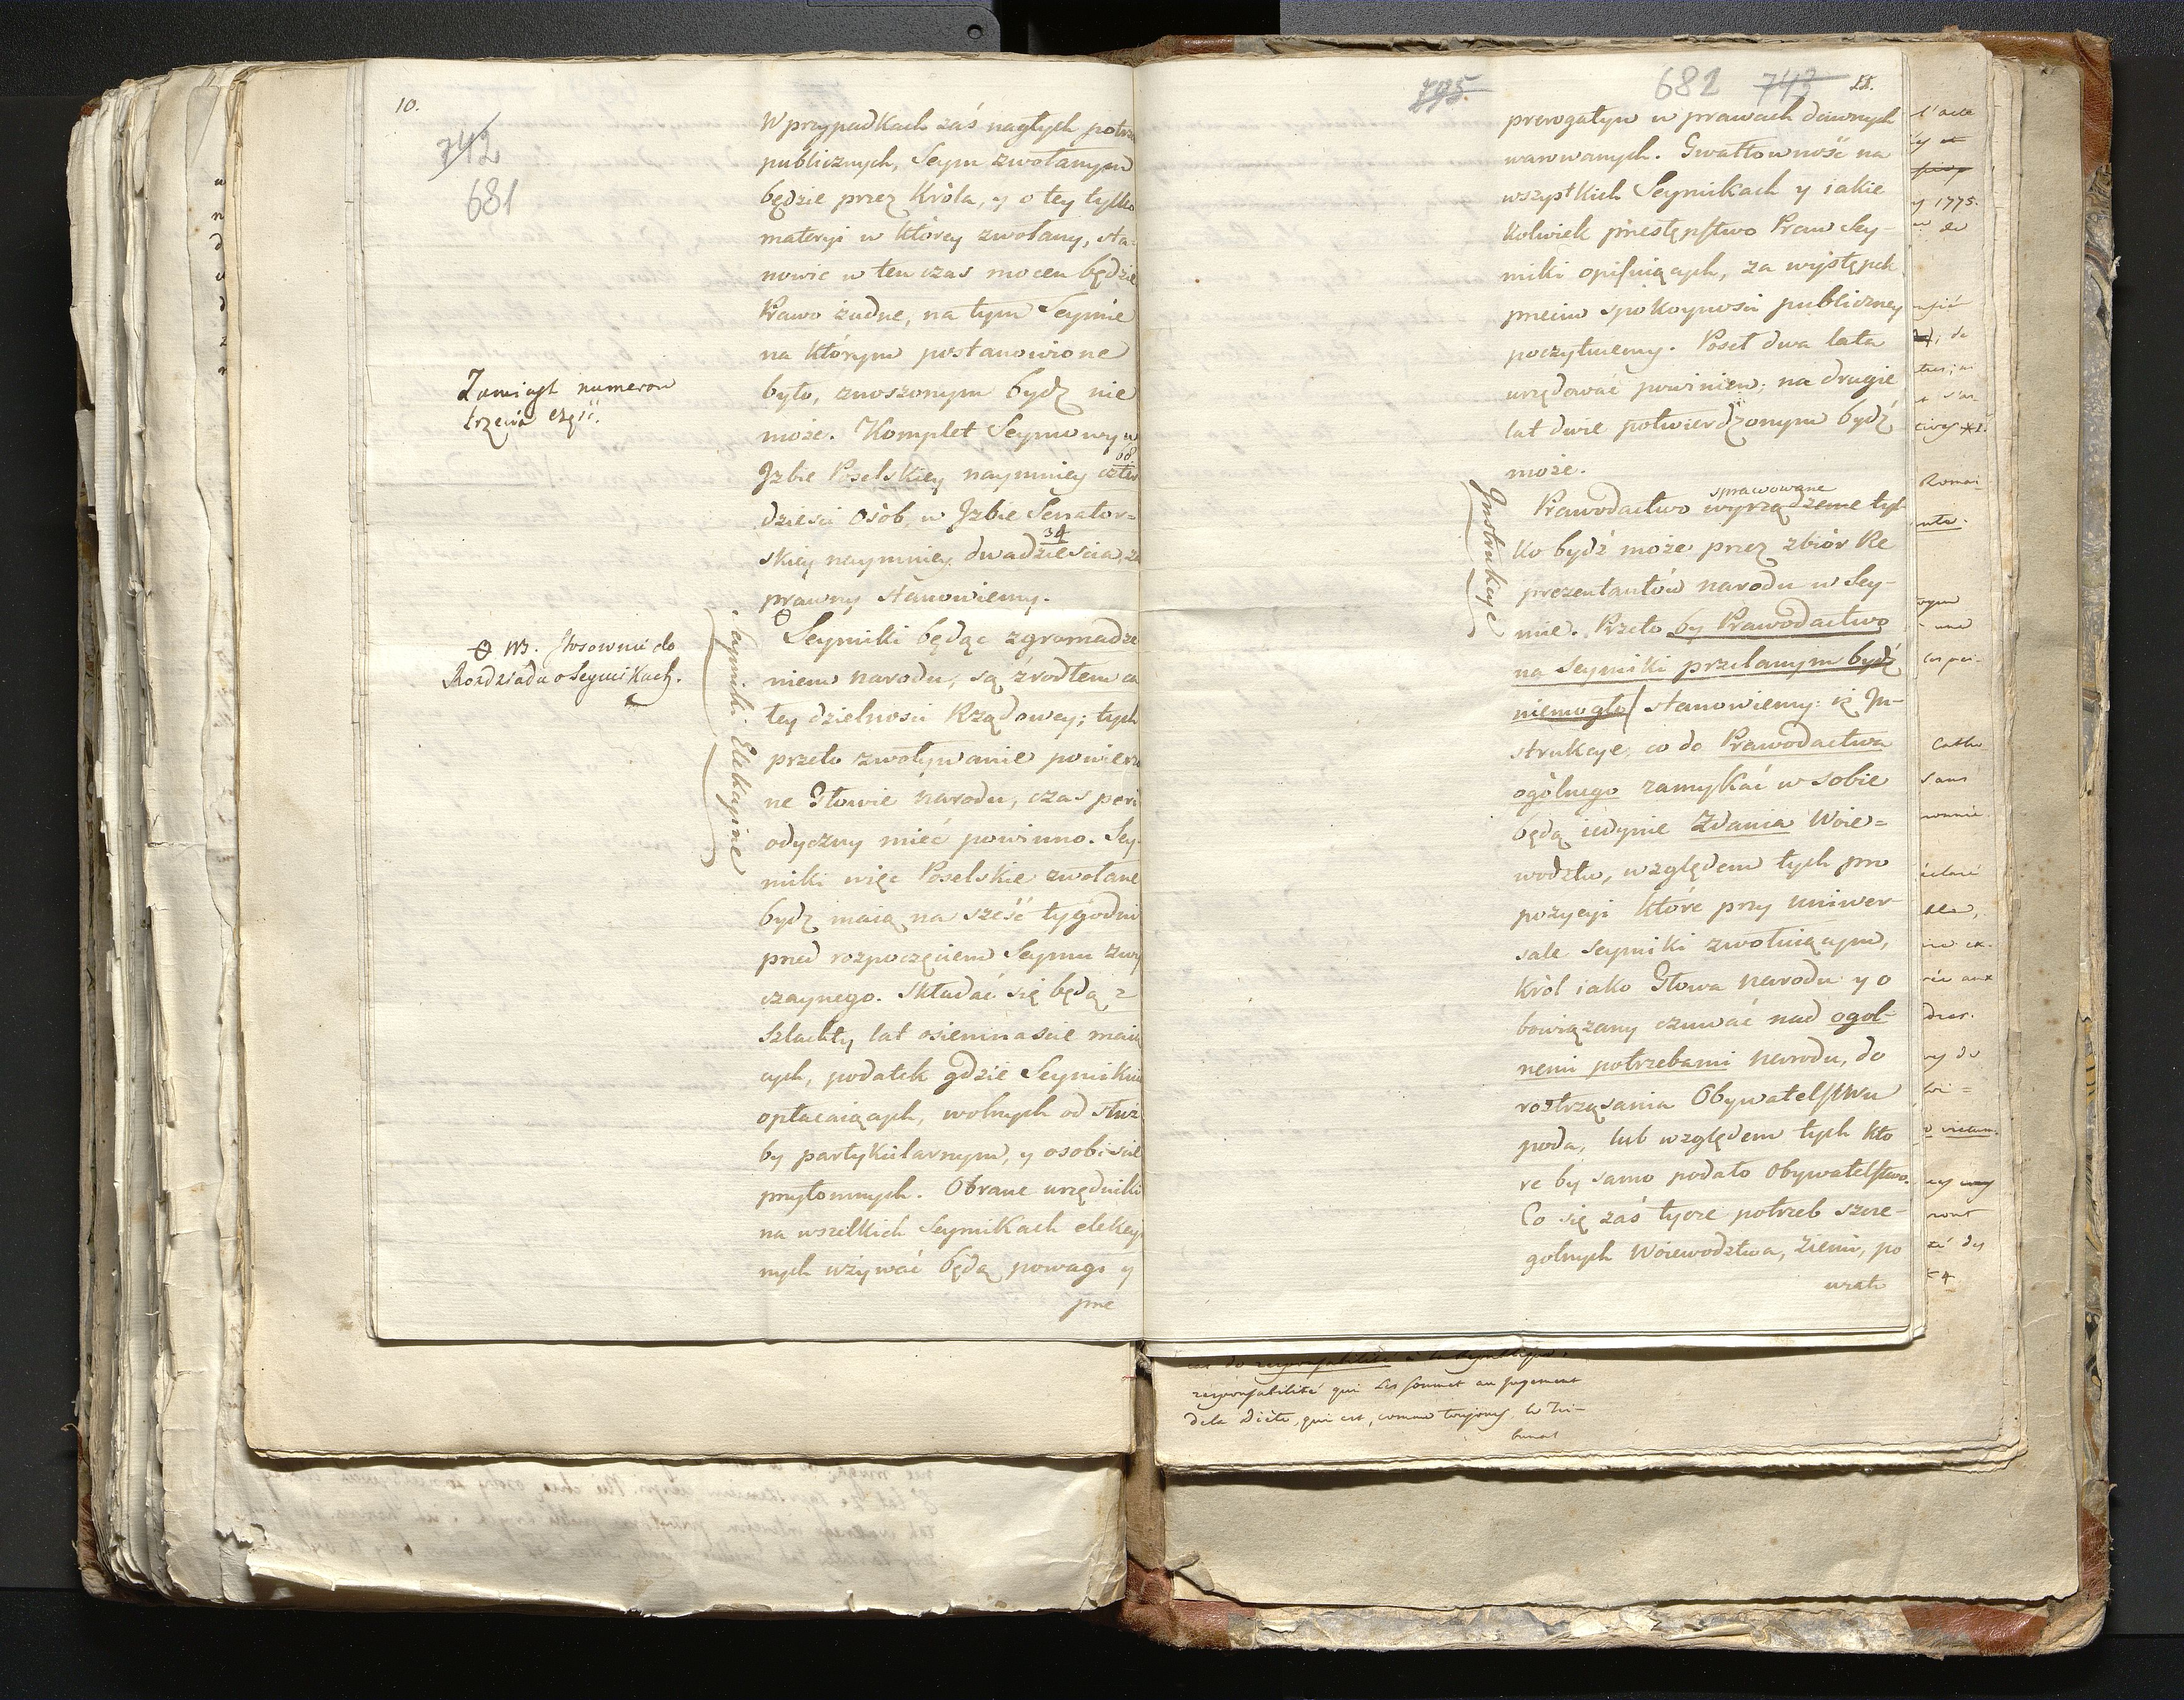 10.
742
681
W przypadkach zaś nagłych potrze
publicznych, Seym zwołanym
będzie przez Króla, y o tey tylko
materyi w którey zwołany, sta-
nowić w ten czas mocen będzie
Prawo żadne, na tym Seymie
na którym postanowione
było, znoszonym bydz nie
może. Komplet Seymowy w
68.
Jzbie Poselskiey naymniey czter
dzieści osób, w Jzbie Senator=
34
skiey naymniey dwadzieścia, za
prawny stanowiemy.
Zamiast numerow
trzecia część.
Θ Seymiki będąc zgromadze
niem narodu, są źrodłem ca
łey dzielności Rządowey; tych
przeto zwoływanie powierzo
ne Głowie narodu, czas peri
odyczny mieć powinno. Sey-
miki więc Poselskie zwołane
bydz maią na sześć tygodni
przed rozpoczęciem Seymu zwy
czaynego. Składać się będą z
Szlachty lat ośiemnascie maią
cych, podatek gdzie Seymikuią
opłacaiących, wolnych od służ
by partykularnym, y osobiscie
przytomnych. Obrane urzędniki
na wszelkich Seymikach elekcyi
nych używać będą powagi y
pre
Θ NB. Stosownie do
Rozdziału o Seymikach.
Seymiki Elekcyine
795.
682 743 11.
prerogatyw w prawach dawnych
warowanych. Gwałtowność na
wszystkich Seymikach y iakie
kolwiek przestępstwo Praw Sey-
miki opisuiących, za występek
przeciw spokoyności publiczney
poczytuiemy. Poseł dwa lata
urzędować powinien; na drugie
lat dwie potwierdzonym bydź
może.
Instrukcye
sprawowane
Prawodactwo wyrządzeme tyl-
ko bydź może przez zbiór Re
prezentantów narodu w Sey-
mie. Przeto by Prawodactwo
na Seymiki przelanym bydź
niemogło/ stanowiemy: iż In-
strukcye, co do Prawodactwa
ogólnego zamykać w sobie
będą iedynie Zdania Woie=
wodztw, względem tych pro
pozycyi które przy uniwer-
sale Seymiki zwołuiącym,
Król iako Głowa narodu y o
bowiązany czuwać nad ogol-
nemi potrzebami narodu, do
roztrząsania Obywatelstwu
poda, lub względem tych kto
re by samo podało Obywatelstwo.
Co się zaś tycze potrzeb szcze-
golnych Woiewodztwa, Ziemi, po
wiatu
l'acte
y 1775.
Romai-
une
Catho
Sans
responsabilité qui les soumet au jugement
de la Diète, qui est, comme toujours, le Tri-
bunal